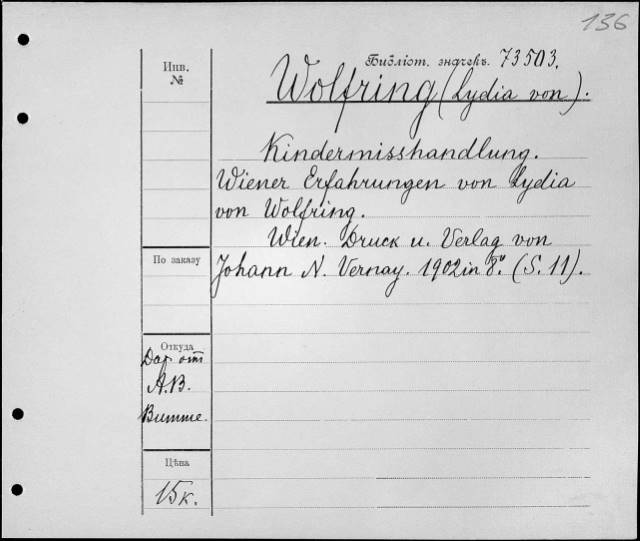 136
Библіот. значекъ. 73503.
Инв.
№
Wolfring (Lydia von).
Kindermisshandlung.
Wiener Erfahrungen von Lydia
von Wolfring.
Wien. Druck u. Verlag von
По заказу
Johann N. Vernay. 1902 in 8º. (S. 11).
Откуда
Дар от
А.В.
Витте.
Цѣна
15 к.